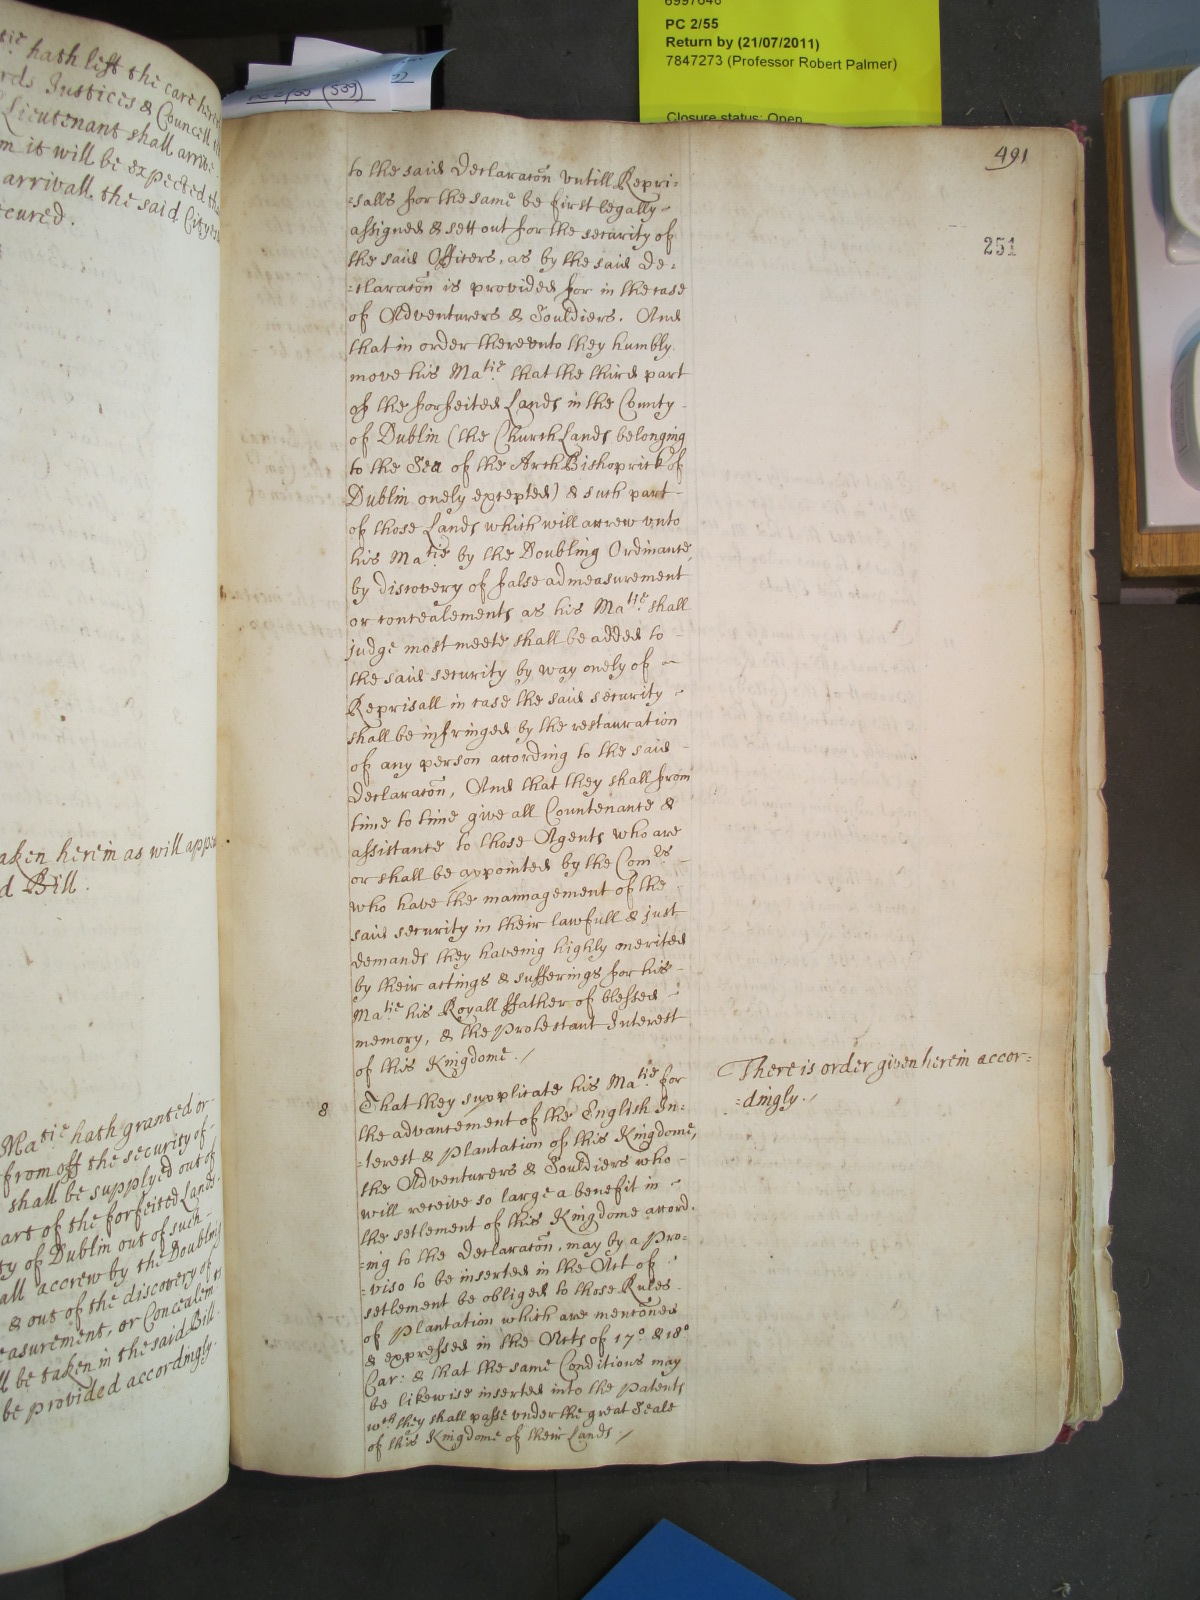 6997646
PC 2/55
Return by (21/07/2011)
7847273 (Professor Robert Palmer)
Closure status: Open
491
251
tie hath left the care here
rds Justices & Councell
Lieutenant shall arrive
m it will be expected th
arrivall the said City
ecured.
aken herein as will appe
d Bill.
Matie hath granted or
from off the security of
shall be supplyed out of
art of the forfeited Lands
ty of Dublin out of such
all accrew by the Doubling
& out of the discovery of
easurement, or Concealm
ll be taken in the said Bill
be provided accordingly.
to the said Declaracōn vntill Repri:
:salls for the same be first legally
assigned & sett out for the security of
the said Officers, as by the said De:
:claracōn is provided for in the case
of Adventurers & Souldiers. And
that in order therevnto they humbly
move his Matie. that the third part
of the forfeited Lands in the County
of Dublin (the Church Lands belonging
to the Sea of the ArchBishoprick of
Dublin onely excepted) & such part
of those Lands which will accrew vnto
his Matie by the Doubling Ordinance,
by discovery of false admeasurement
or concealements as his Matie. shall
judge most meete shall be added to
the said security by way onely of
Reprisall in case the said security
shall be infringed by the restauration
of any person according to the said
Declaracōn, And that they shall from
time to time give all Countenance &
assistance to those Agents who are
or shall be appointed by the Comrs
who have the mannagement of the
said security in their lawfull & just
demands they haveing highly merited
by their actings & sufferings for his
Matie his Royall ffather of blessed
memory, & the Protestant Interest
of this Kingdome.
8 That they supplicate his Matie. for
the advancement of the English In:
:terest & Plantation of this Kingdome,
the Adventurers & Souldiers who
will receive so large a benefit in
the setlement of this Kingdome accord.
:ing to the Declaracōn, may by a Pro:
:viso to be inserted in the Act of
setlement be obliged to those Rules
of Plantation which are mencōned
& expressed in the Acts of 17º. & 18º
Car: & that the same Conditions may
be likewise inserted into the Patents
wch they shall passe vnder the great Seale
of this Kingdome of their Lands.
There is order given herein accor:
:dingly.